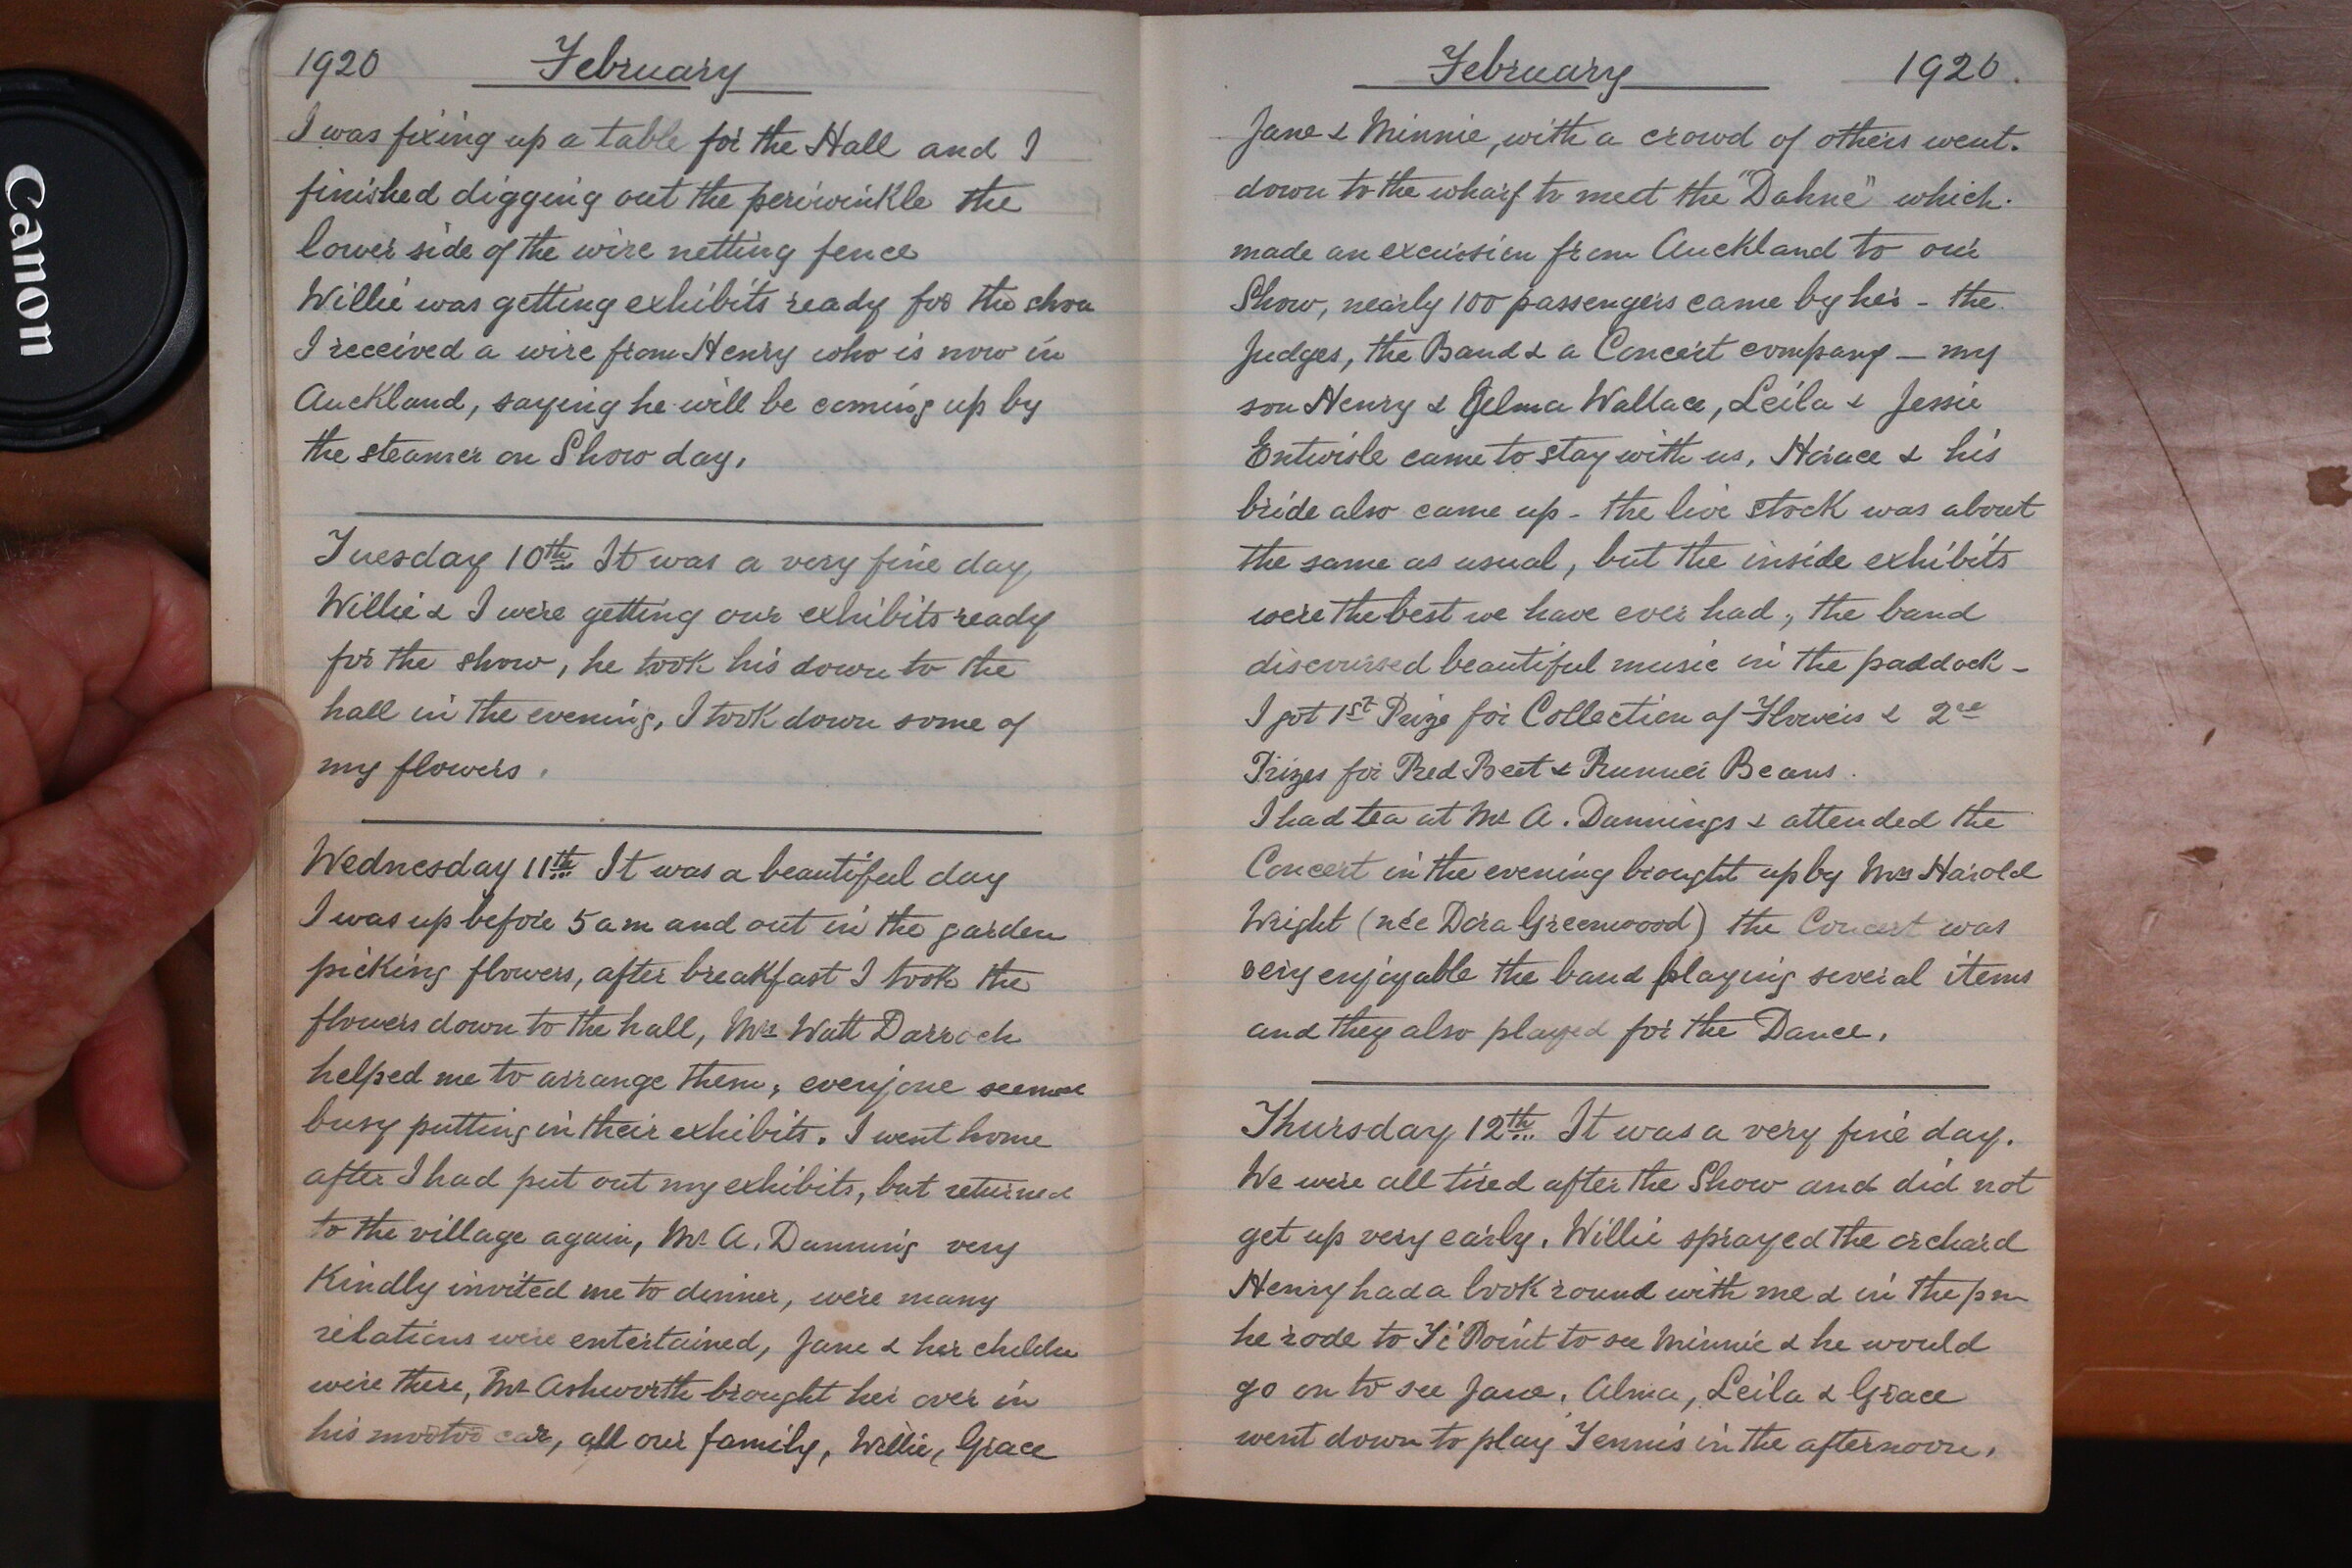 Canon
1920 February
I was fixing up a table for the Hall and I
finished digging out the periwinkle the
lower side of the wire netting fence
Willie was getting exhibits ready for the show
I received a wire from Henry who is now in
Auckland, saying he will be coming up by
the steamer on Show day.
Tuesday 10th It was a very fine day
Willie & I were getting our exhibits ready
for the show, he took his down to the
hall in the evening, I took down some of
my flowers.
Wednesday 11th It was a beautiful day
I was up before 5 am and out in the garden
picking flowers, after breakfast I took the
flowers down to the hall, Mrs Watt Darroch
helped me to arrange them, everyone seemed
busy putting in their exhibits. I went home
after I had put out my exhibits, but returned
to the village again, Mr A. Dunning very
Kindly invited me to dinner, were many
relations were entertained, Jane & her childn
were there, Mr Ashworth brought her over in
his mootor car, all our family, Willie, Grace
February 1920.
Jane & Minnie, with a crowd of others went.
down to the wharf to meet the "Dahne" which.
made an excursion from Auckland to our
Show, nearly 100 passengers came by her - the
Judges, the Band & a Concert company - my
son Henry & Wallace, Leila & Jessie
Entwisle came to stay with us, Horace & his
bride also came up - the live stock was about
the same as usual, but the inside exhibits
were the best we have ever had, the band
discoursed beautiful music in the paddock -
I got 1st Prize for Collection of Flowers & 2nd
Prizes for Red Beet & Runner Beans.
I had tea at Mr A. Dunnings & attended the
Concert in the evening brought up by Mrs Harold
Wright (née Dora Greenwood) the Concert was
very enjoyable the band playing several items
and they also played for the Dance.
Thursday 12th It was a very fine day.
We were all tired after the Show and did not
get up very early. Willie sprayed the orchard
Henry had a look round with me & in the pm
he rode to Ti Point to see Minnie & he would
go on to see Jane. Alma, Leila & Grace
went down to play Tennis in the afternoon.